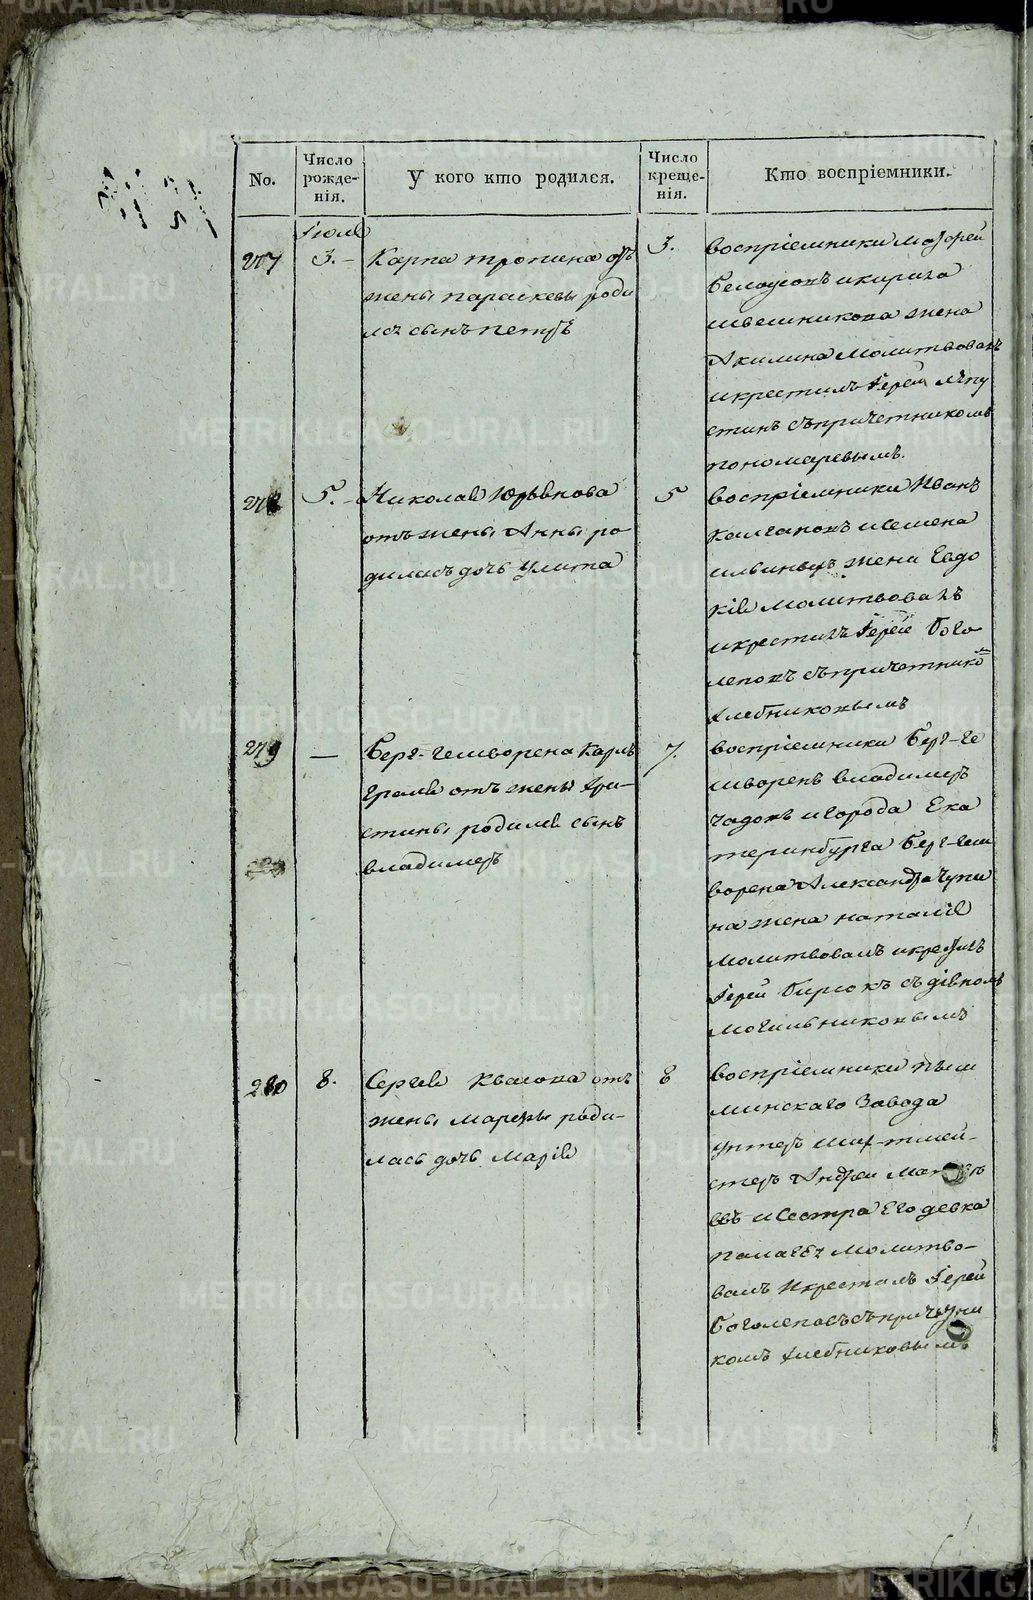 No.
Число рожденія.
У кого кто родился.
Число крещенія.
Кто воспріемники.
Іюля
277
3.
Карпа тропина отъ
жены параскевы роди
лсѧ сынъ петръ
3.
воспріемники
белоусовъ икирила
жена
Акилина молитвовалъ
икрестилъ Іерей
стинъ съпричетникомъ
пономаревымъ.
278
5.
Николаѧ
отъ жены Анны ро
дилась дочь улита
5
воспріемники Иванъ
исемена
жена Евдо
кія молитвовалъ
икрестилъ Іерей Бого
леповъ съпричетнико
хлебниковымъ
279
—
Бергъ-гешворена Карла
грамѧ отъ жены хри-
стины родился сынъ
владимеръ
7.
воспріемники Берг-ге
шворенъ владимеръ
чадовъ игорода Ека
теринбурга Берг-геш
ворена Александра чупи
на жена наталіѧ
молитвовалъ икрестилъ
Іерей Бирюковъ съ діакономъ
могильниковымъ
280
8.
Сергеѧ Квасова отъ
жены марѳы роди-
лась дочь маріѧ
8
воспріемники пыш
минскаго завода
унтеръ ших-тмей-
стеръ Андреи
евъ исестра Его девка
палагея молитво-
валъ икрестилъ Іерей
боголеповъ съпричетни
комъ хлебниковымъ
METRIKI.GASO-URAL.RU